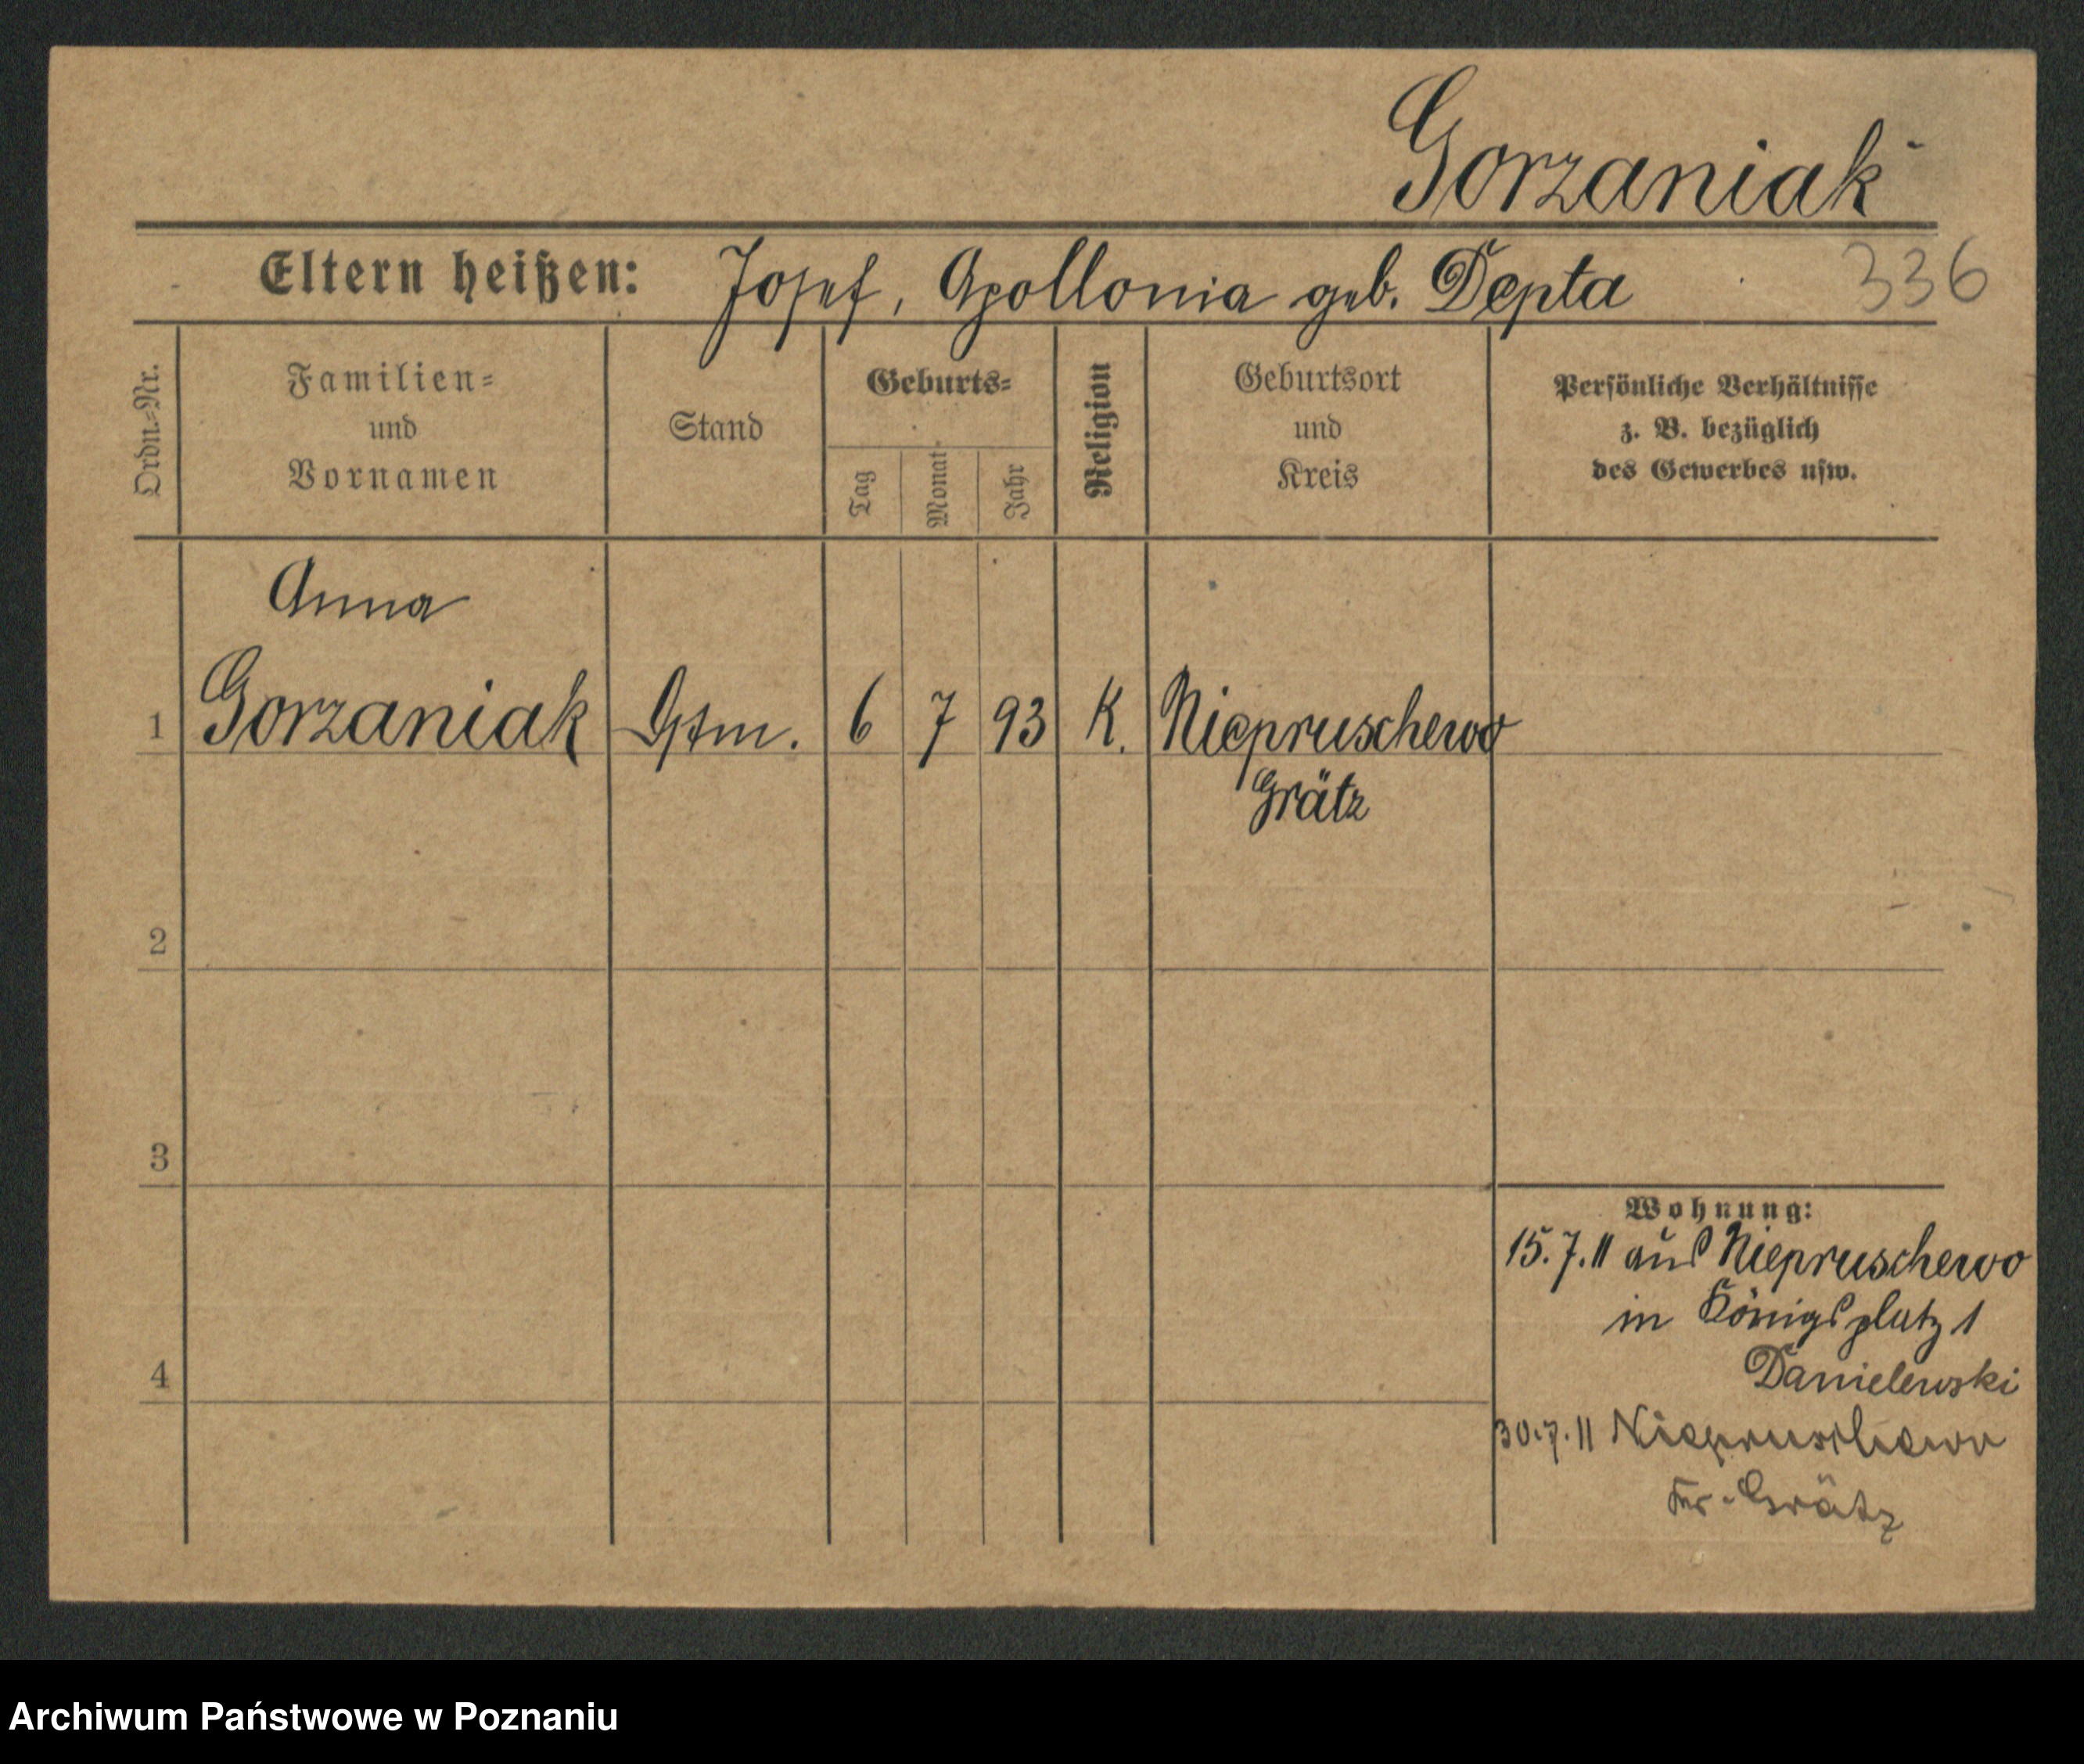 Gorzaniak
Eltern heißen: Josef, Apollonia geb. Depta
336
Ordn.=Nr.
Familien=
und
Vornamen
Stand
Geburts=
Tag
Monat
Jahr
Religion
Geburtsort
und
Kreis
Persönliche Verhältnisse
z. B. bezüglich
des Gewerbes usw.
Anna
1 Gorzaniak 6 7 93 K. Niepruschewo
Grätz
2
3
4
Wohnung:
15.7.11 aus Niepruschewo
in Königsplatz 1
Danielewski
30.7.11 Niepruschewo
Kr. Grätz
Archiwum Państwowe w Poznaniu